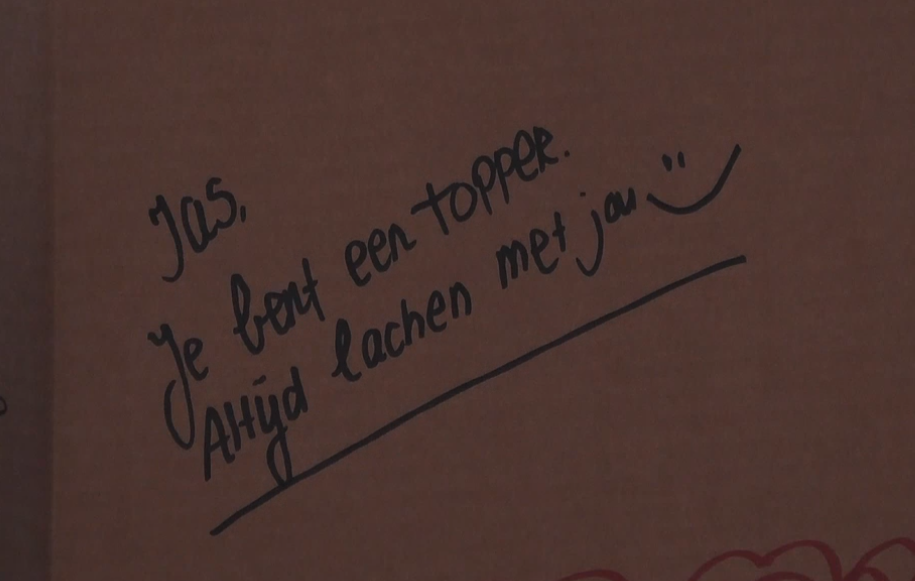 Jas,
Je bent een topper.
Altijd lachen met jou